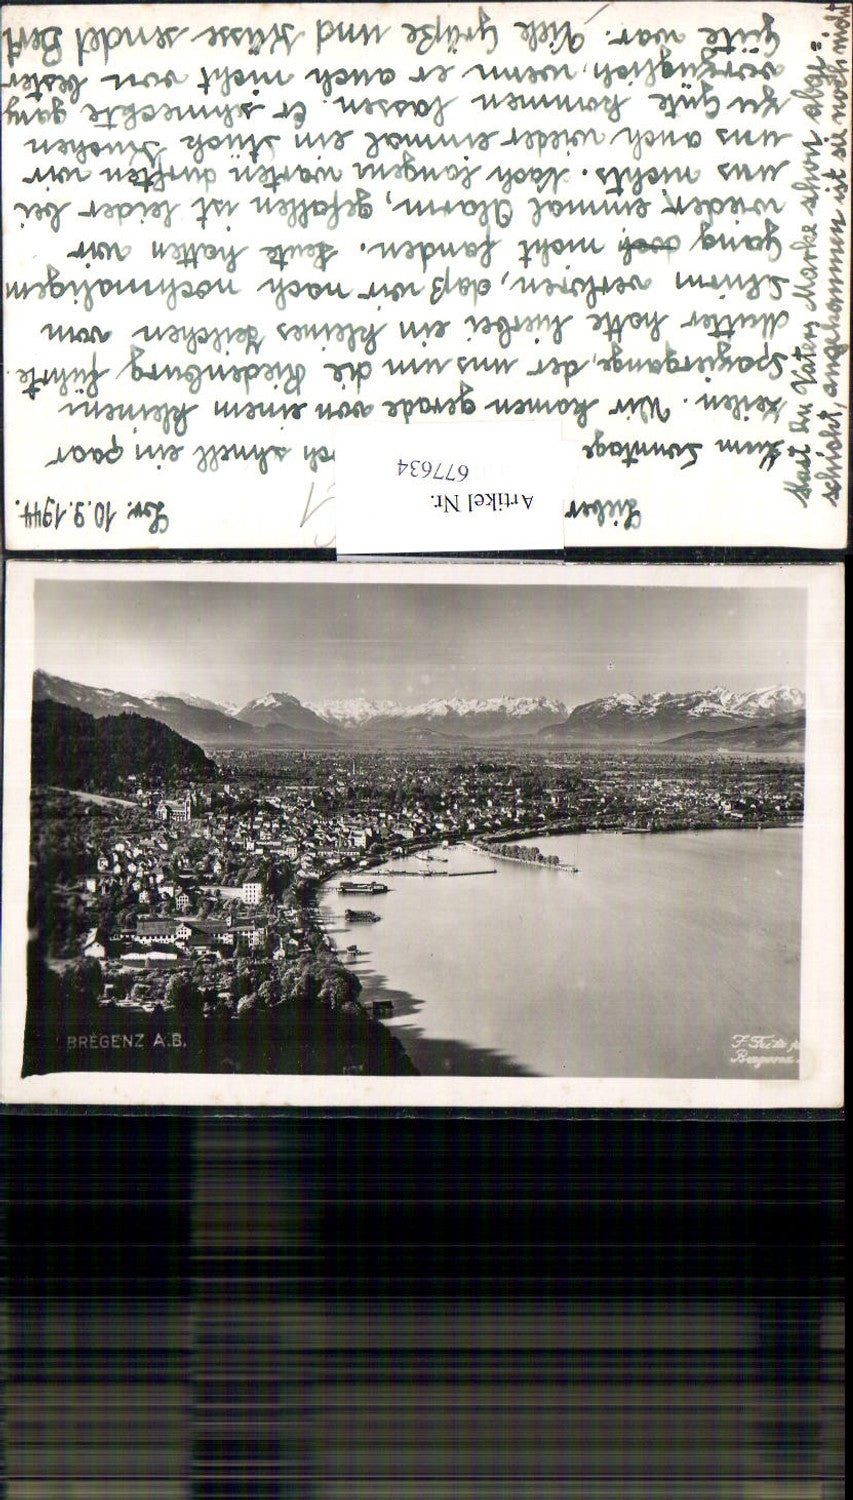 Lov. 10.9.1944.
Lieber
Zum Sonntage och schnell ein paar
Zeilen. Wir kamen gerade von einem kleinem
Spaziergange, der uns um die Riedenburg führte.
Mutter hatte hierbei ein kleines Teilchen vom
Schirm verloren, daß wir nach nochmaligem
Gang nicht fanden. Heute hatten wir
wieder einmal Alarm, gefallen ist leider bei
uns nichts. Nach langem warten durften wir
uns auch wieder einmal ein Stück Kuchen
zu Gute kommen lassen. Er schmeckte ganz
vorzüglich, wenn er auch nicht von bester
Güte war. Viele Grüße und Küsse sendet Bert
Hast Du Vaters Marke schon abge=
schickt, angekommen ist sie noch nicht
Artikel Nr.
677634
BREGENZ A.B.
Bregenz